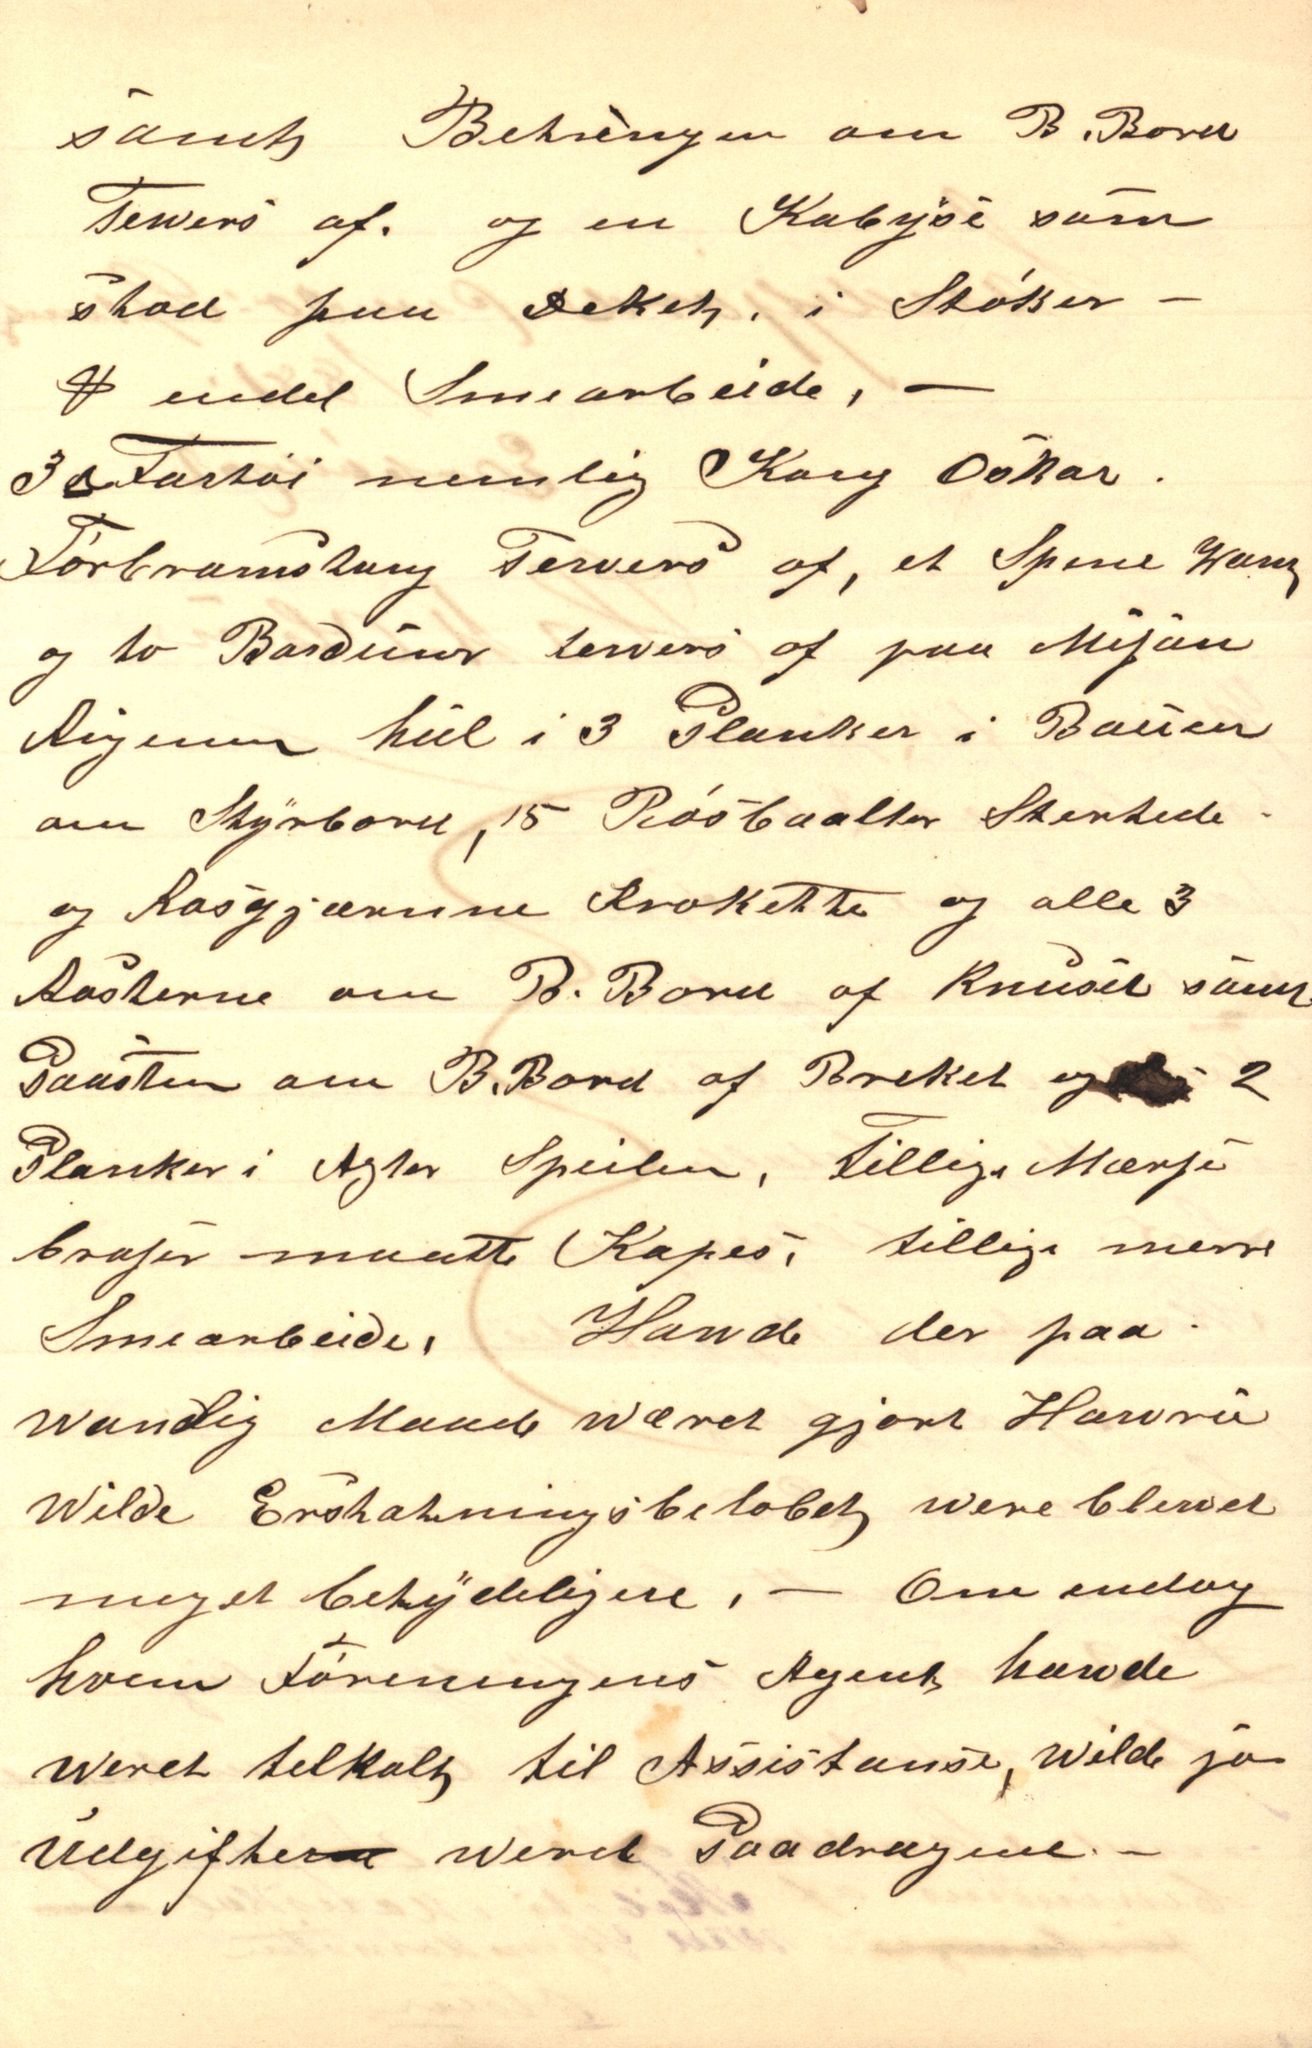 samt Betingen om B. Bord
Tewers af. og en Kabyse som
stod paa Deket, i Støker —
& endel Smearbeide, —
3 Fartøi nemlig Kong Oskar.
Førbramstang Tewers af, et Spene Want
og to Barduner tewers af paa Mesan
Rigenen hul i 3 Planker i Bauen
om Styrbord, 15 Røsbaalter Sterkede
og Rosgjærnene Krokette og alle 3
Røsterne om B. Bord af Knuset samt
Paasten om B. Bord af Breket og 2
Planker i Agter Speilen, Tillige Mærse
braser maatte Kapes, tillige mere
Smearbeide. Hawde der paa
wandlig Maade været gjort Hawri
wilde Erstatningsbelobet were blewet
meget betydeligere, — Om endog
hvem Føreningens Agent hawde
weret telkalt til Assistanse, wilde jo
Udgifter weret Paadragene. —